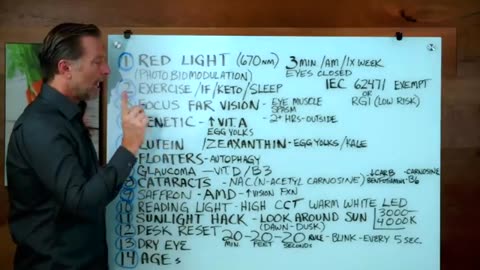 1 RED LIGHT (670NM) 3 MIN/AM/1X WEEK
(PHOTOBIOMODULATION) EYES CLOSED
2 EXERCISE/IF/KETO/SLEEP IEC 62471 EXEMPT
OR
RG1 (LOW RISK)
FOCUS FAR VISION - EYE MUSCLE
SPASM
GENETIC - ↑VIT.A 2+ HRS-OUTSIDE
EGG YOLKS
LUTEIN/ZEAXANTHIN - EGG YOLKS/KALE
FLOATERS - AUTOPHAGY
GLAUCOMA - VIT.D/B3 ↓CARB - CARNOSINE
BENFOTIAMINE - B6
CATARACTS - NAC (N-ACETYL CARNOSINE)
SAFFRON - AMD - ↑VISION FXN
READING LIGHT - HIGH CCT WARM WHITE LED
3000-
4000K
11 SUNLIGHT HACK - LOOK AROUND SUN
(DAWN-DUSK)
12 DESK RESET
13 DRY EYE 20-20-20 RULE - BLINK - EVERY 5 SEC.
MIN. FEET SECONDS
14 AGEs